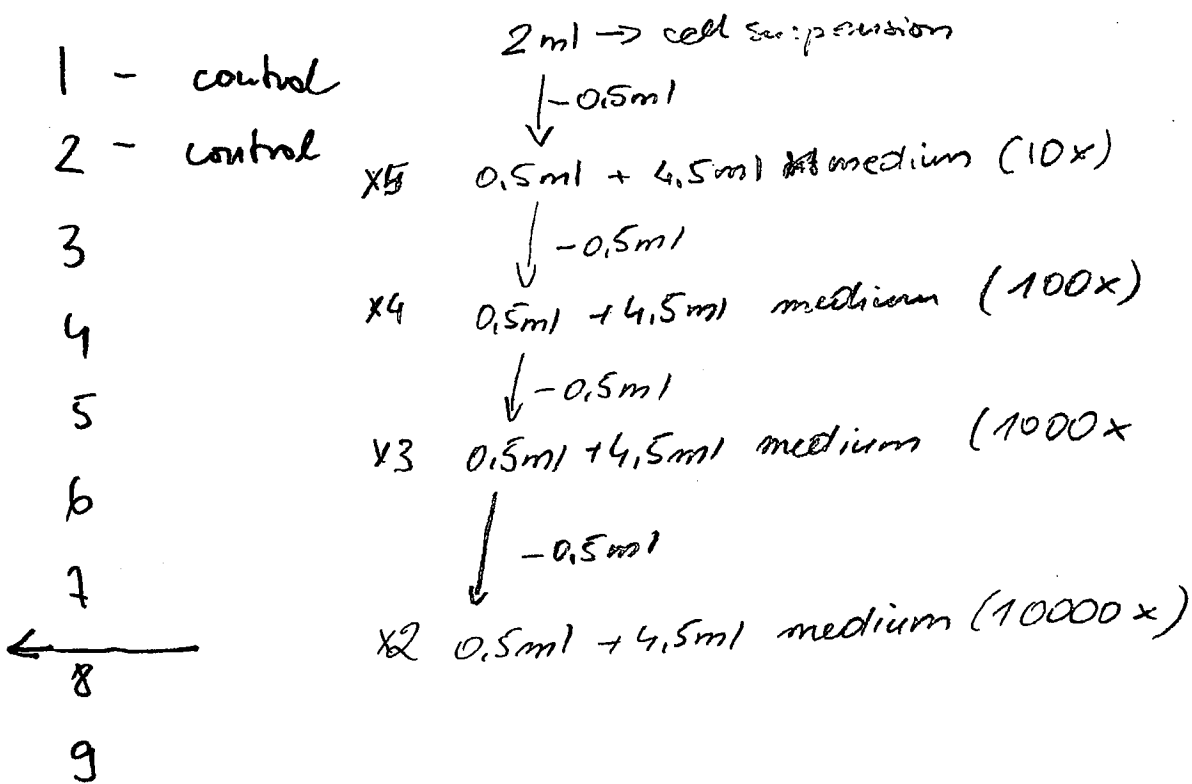 1 - control
2 - control
3
4
5
6
7
8
9
2 ml → cell suspension
-0,5ml
x5 0,5ml + 4,5ml medium (10x)
-0,5ml
x4 0,5ml + 4,5ml medium (100x)
-0,5ml
x3 0,5ml + 4,5ml medium (1000x
-0,5ml
x2 0,5ml + 4,5ml medium (10000x)